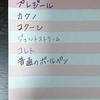 プレジール
カクノ
コクーン
ジェットストリーム
コレト
普通のボールペン